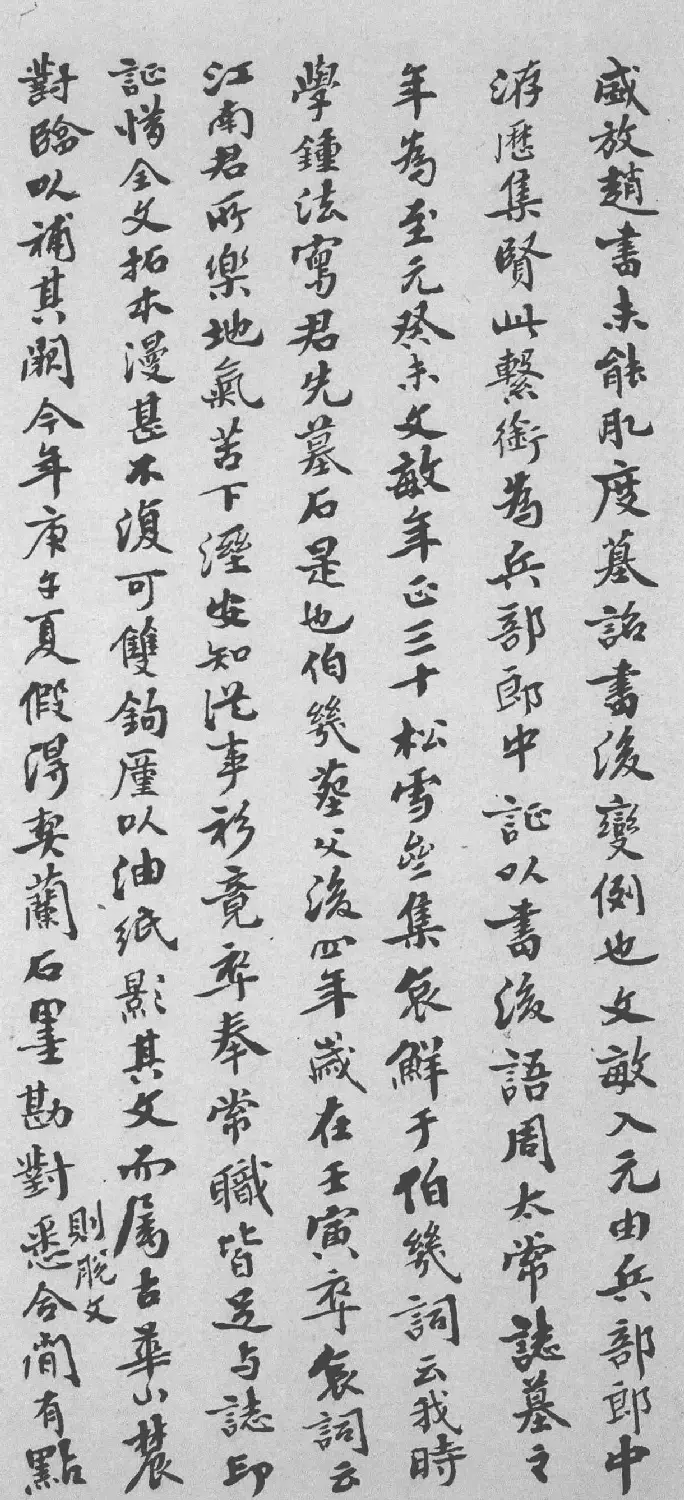 盛放趙書未能肊度墓誌書後變例也文敏入元由兵部郎中
洊歷集賢此繫銜為兵部郎中証以書後語周太常誌墓之
年為至元癸未文敏年正三十松雪齋集哀鮮于伯幾詞云我時
學鍾法寫君先墓石是也伯幾葬父後四年歲在壬寅卒哀詞云
江南君所樂地氣苦下溼安知從事衫竟卒奉常職皆足与誌印
証惜全文拓本漫甚不復可雙鉤廑以油紙影其文而属古華山農
對臨以補其闕今年庚午夏假得契蘭石墨勘對悉合間有點
則脫文